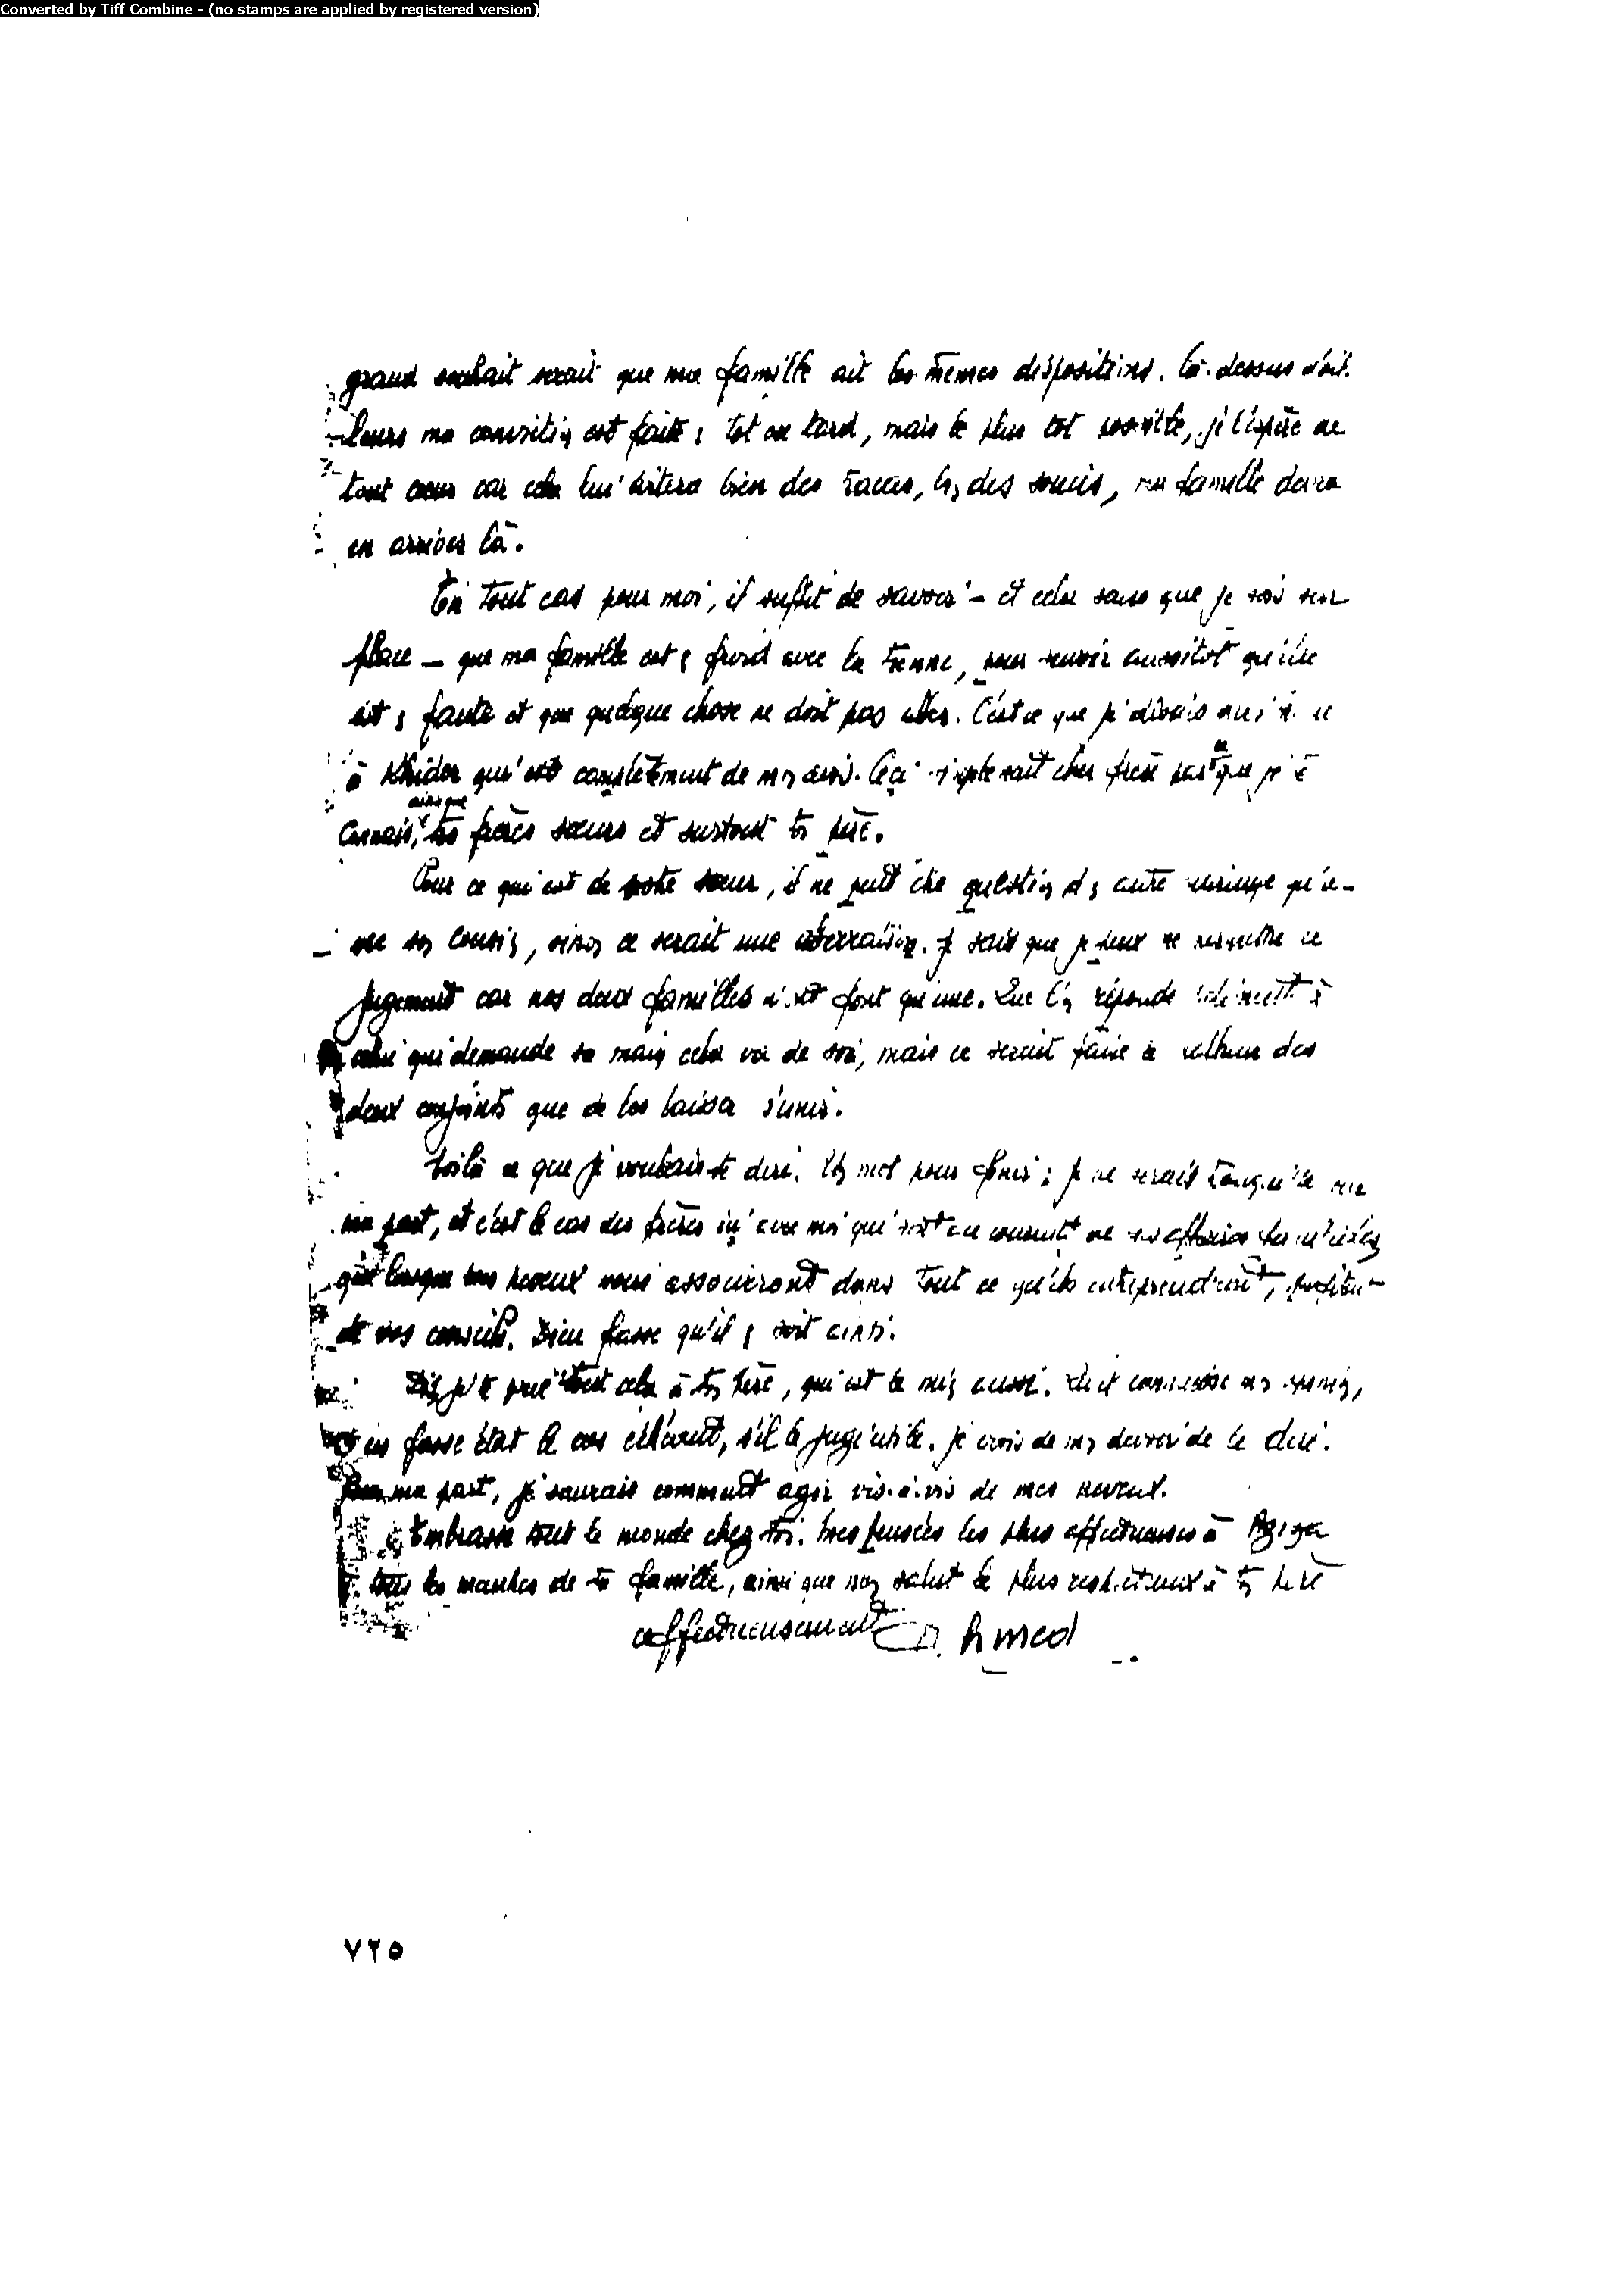 Converted by Tiff Combine - (no stamps are applied by registered version)
grand souhait serait que ma famille ait les mêmes dispositions. Là-dessus d'ail-
leurs ma conviction est faite : tot ou tard, mais le plus tot possible, je l'espère de
tout cœur car cela lui évitera bien des tracas, bien des soucis, ma famille devra
en arriver là.
En tout cas pour moi, il suffit de savoir - et cela sans que je sois sur
place - que ma famille est en froid avec la tienne, pour savoir aussitot qu'elle
est en faute et que quelque chose ne doit pas aller. C'est ce que je disais
à Khider qui est complètement de mon avis. Ceci cher frère parce que je te
connais, ainsi que tes frères sœurs et surtout ton père.
Pour ce qui est de notre sœur, il ne peut être question d'un autre mariage qu'a-
vec son cousin, sinon ce serait une aberration. Je sais que je peux me permettre ce
jugement car nos deux familles n'en font qu'une. Que l'on réponde à
celui qui demande sa main cela va de soi, mais ce serait faire le malheur des
deux conjoints que de les laisser s'unir.
Voilà ce que je voulais te dire. Un mot pour finir : je ne serais tranquille
ma part, et c'est le cas des frères ici avec moi qui sont au courant de nos affaires
que lorsque mes neveux vous associeront dans tout ce qu'ils entreprendront,
de vos conseils. Dieu fasse qu'il en soit ainsi.
Dis je te prie tout cela à ton père, qui est le mien aussi. Qu'il connaisse mon opinion,
en fasse état le cas échéant, s'il le juge utile. Je crois de mon devoir de le dire.
Pour ma part, je saurais comment agir vis-à-vis de mes neveux.
Embrasse tout le monde chez toi. Mes pensées les plus affectueuses à Aziza
tous les membres de ta famille, ainsi que mon salut le plus respectueux à ton père
affectueusement Ahmed
٧٢٥